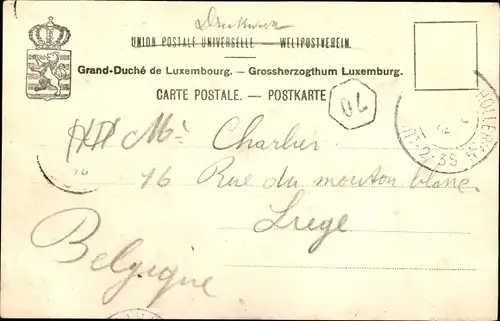 Drucksache
UNION POSTALE UNIVERSELLE — WELTPOSTVEREIN.
Grand-Duché de Luxembourg. — Grossherzogthum Luxemburg.
CARTE POSTALE. — POSTKARTE
70
Mr Charlier
16 Rue du mouton blanc
Liege
Belgique